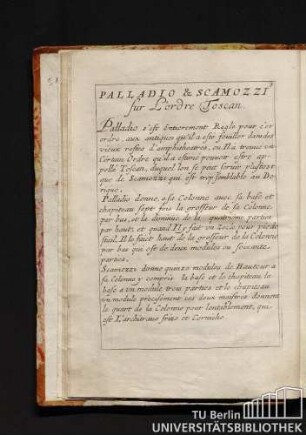 PALLADIO & SCAMOZZI
sur L'ordre Toscan
Palladio s'est Entierement Regle pour cet
ordre aux antiques qu'il a esté fouiller dans les
vieux restes d'amphitheatres, ou Il a trouué un
Certain Ordre qu'il a estimé pouuoir estre ap
pellé Toscan, duquel on se peut seruir plustost
que de Scamozzi qui est trop semblable au Do
rique.
Palladio donne a sa Colonne auec sa base et
chapiteau sept fois la grosseur de sa Colonne
par bas, et la diminue de la quatrieme partie
par haut, et quand Il y fait un Zocle pour piede
stal, Il le fait haut de la grosseur de la Colonne
par bas qui est de deux modules ou soixante
parties.
Scamozzi donne quinze modules de Hauteur a
sa Colonne y compris la base et le chapiteau, sa
base a un module trois parties et le chapiteau
un module precisement ces deux maistres donnent
le quart de la Colonne pour l'entablement, qui
est L'architraue frise et Corniche.
TU Berlin
UNIVERSITÄTSBIBLIOTHEK